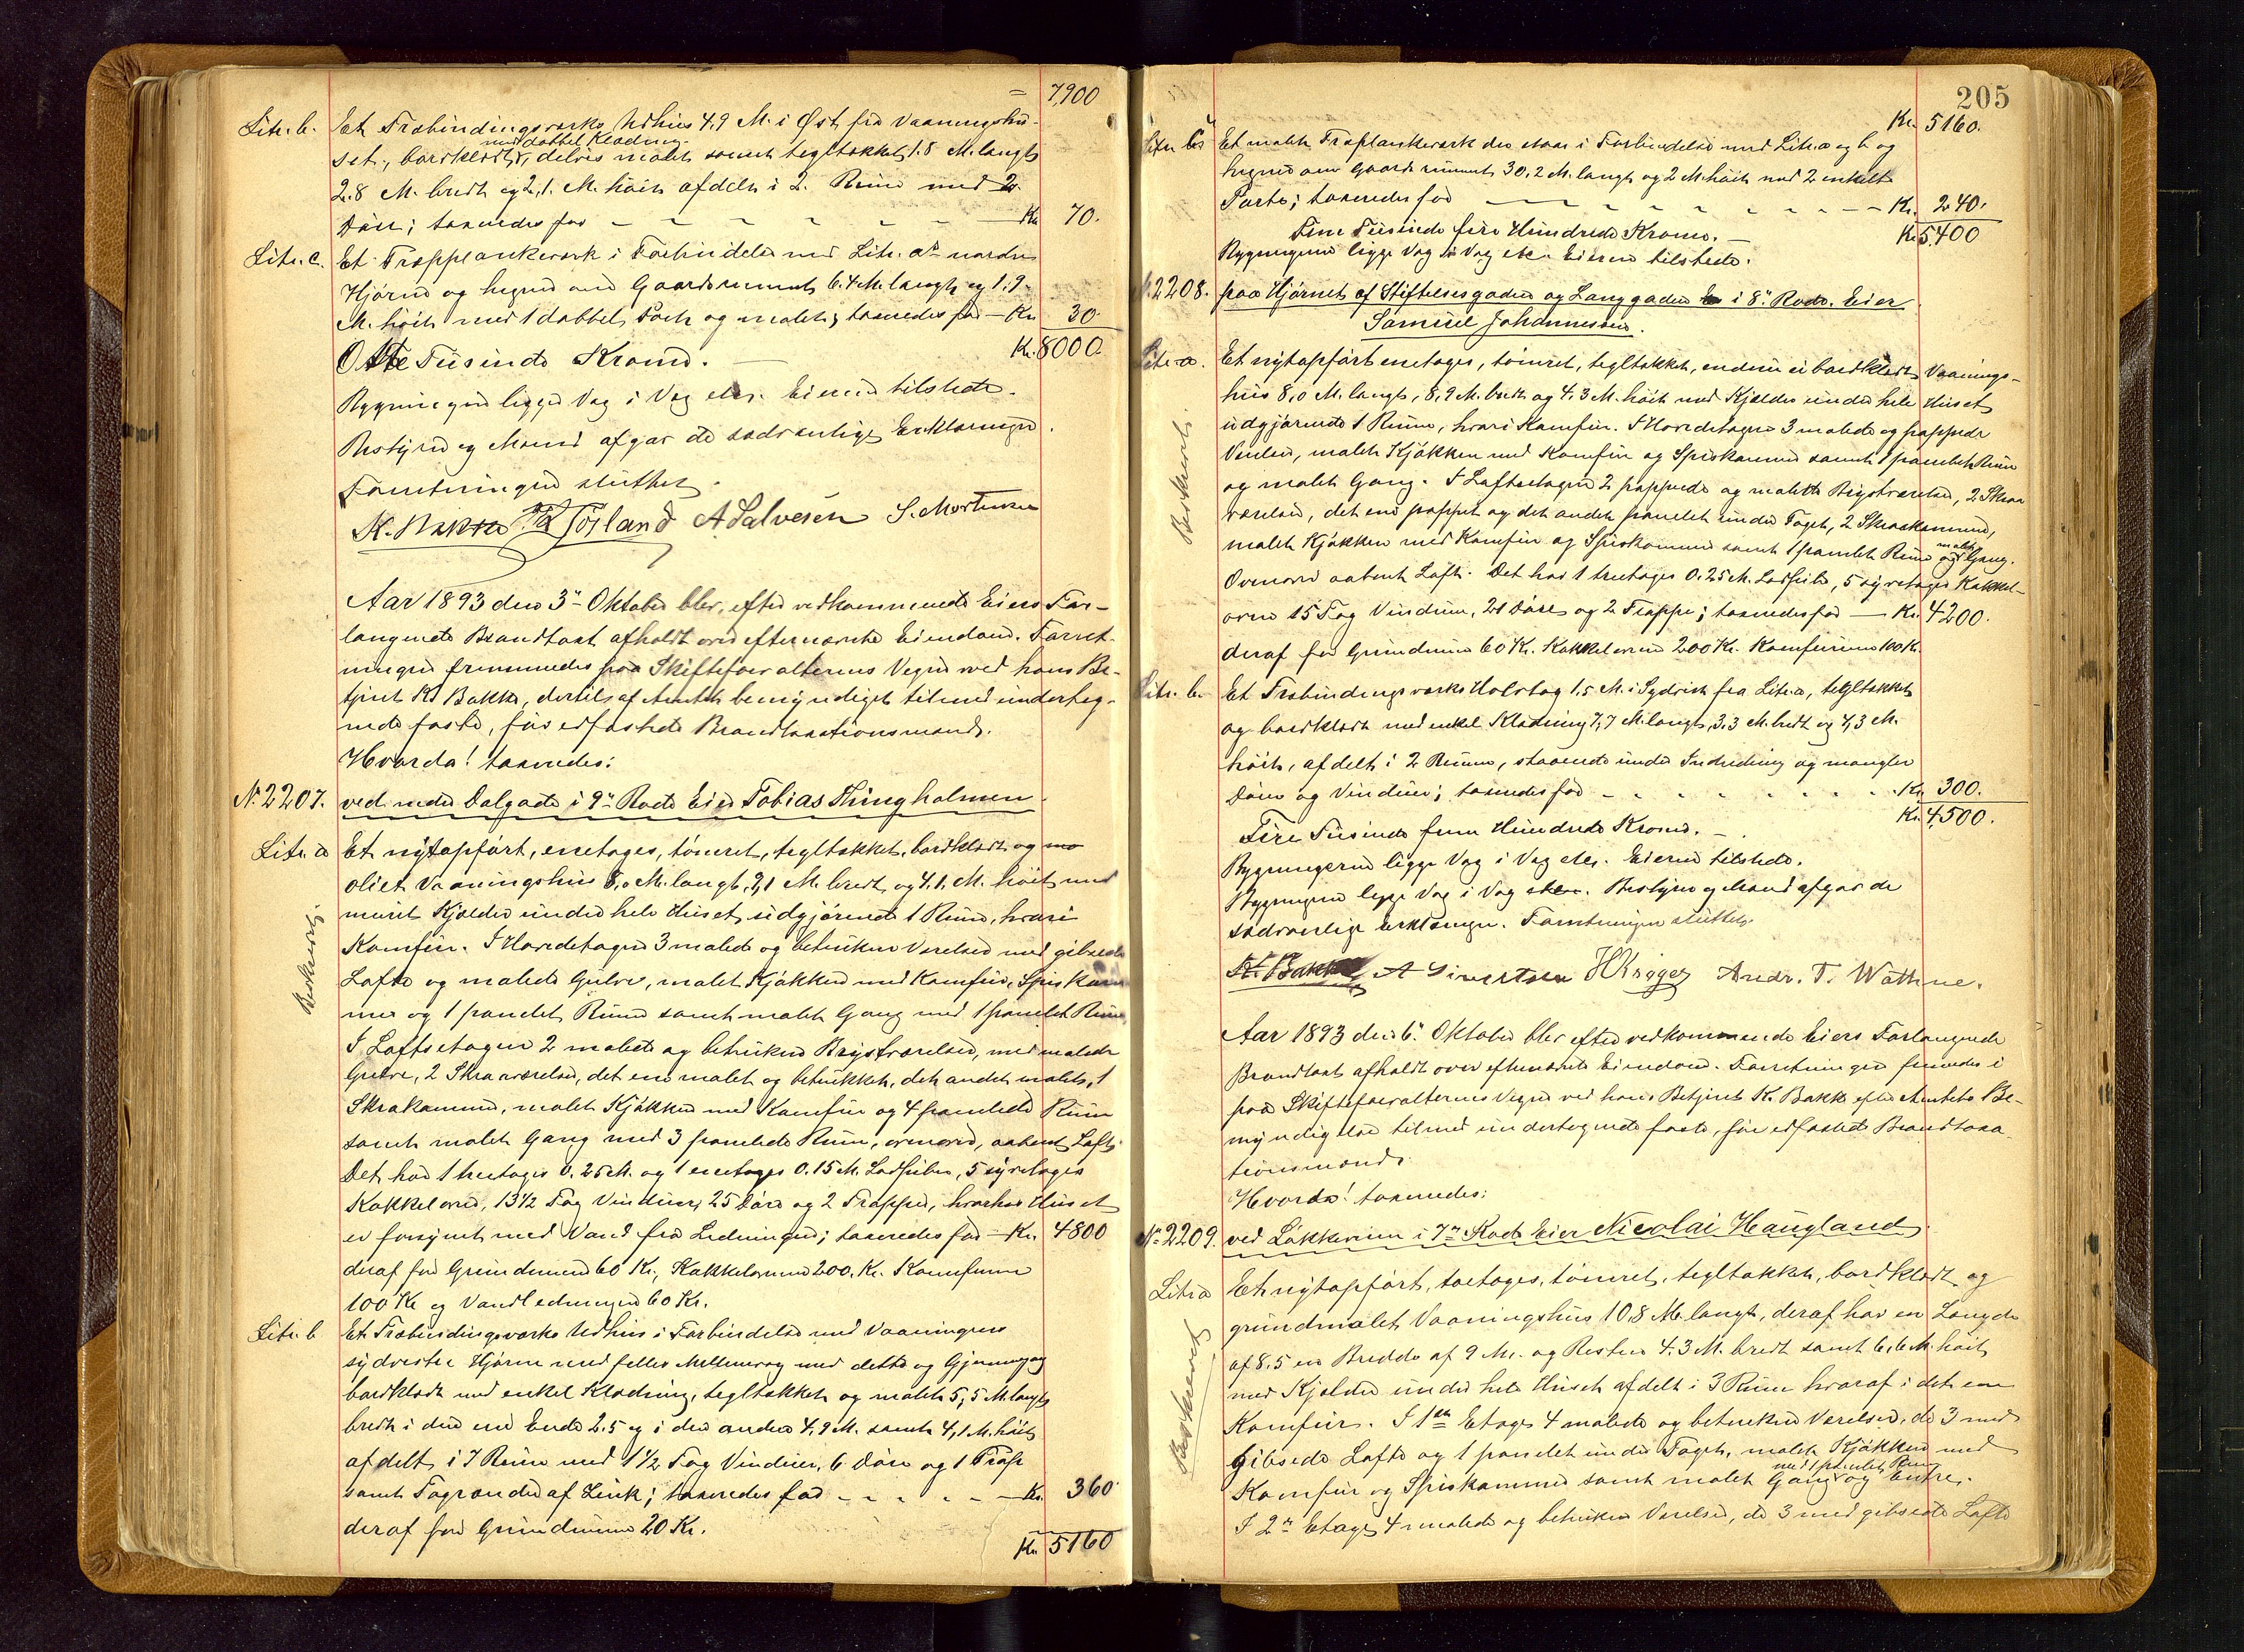 = 7,900
Litr. b. Et Træbindingsværks Udhus 4,9 M. i Øst fra Vaaningshu-
med dobbel Klædning
set, bordklædt, delvis malet samt tegltækket 1.8 M. langt
2.8 M. bredt og 2,1. M. høit afdelt i 2. Rum med 2
Døre; taxeredes for - - - - - Kr. 70.
Litr. c. Et Træpplankeværk i Forbindelse med Litr. a's nordre
Hjørne og hegner om Gaardsrummet 6.4 M. langt og 1,9
M. høit med 1 dobbel Port og malet; taxeredes for - Kr. 30.
Otte Tusinde Kroner. Kr. 8000.
Bygningerne ligge Væg i Væg etc. Eieren tilstede.
Bestyrer og Mænd afgav de sædvanlige Erklæringer.
Forretningen sluttet.
K. Bakke Tørland A Salvesen S. Mortensen
Aar 1893 den 3die Oktober blev, efter vedkommende Eiers For-
langende Brandtaxt afholdt over efternævnte Eiendom. Forret-
ningen fremmedes paa Skifteforvalterens Vegne ved hans Be-
tjent K. Bakke, dertil af Amtet bemyndiget tilmed underteg-
nede faste, før edfæstede Brandtaxationsmænd.
Hvorda! taxeredes:
No. 2207. ved nedre Dalgade i 9de Rode Eier Tobias Thingholmen
Litr. a Et nytopført, enetages, tømret, tegltækket, bordklædt og
oliet Vaaningshus 8,0 M. langt, 9,1 M. bredt og 4.1. M. høit med
muret Kjælder under hele Huset udgjørende 1 Rum, hvori
Komfur. I Hovedetagen 3 malede og betrukne Værelser med gibsede
Lofte og malede Gulve, malet Kjøkken med Komfur, Spiskam-
mer og 1 panelet Rum samt malet Gang med 1 panelet Rum,
I Loftsetagen 2 malede og betrukne Brystværelser, med malede
Gulve, 2 Skraaværelser, det ene malet og betrukket, det andet malet, 1
Skrakammer, malet Kjøkken med Komfur og 4 panelede Rum
samt malet Gang med 3 panelede Rum, ovenover, aabent Loft.
Det har 1 treetages 0.25 M. og 1 enetages 0.15 M. Ladpibe, 5 syvetages
Kakkelovne, 13 1/2 Fag Vinduer, 25 Døre og 2 Trapper, hvorhos Huset
er forsynet med Vand fra Ledningen; taxeredes for - Kr. 4800
deraf for Grundmuren 60 Kr., Kakkelovnene 200. Kr. Komfurerne
100 Kr. og Vandledningen 60 Kr.
Beskrevet.
Litr. b Et Træbindingsværks Udhus i Forbindelse med Vaaningens
sydvestre Hjørne med fælles Mellemvæg med dette og Gjenning og
bordklædt med enkel Klædning, tegltækket og malet 5,5 M. langt
bredt i den ene Ende 2.5 og i den anden 4,9 M. samt 4,1 M. høit
afdelt i 7 Rum med 1 1/2 Fag Vinduer, 6 Døre og 1 Trap
samt Tagrender af Zink; taxeredes for - - - - Kr. 360
deraf for Grundmuren 20 Kr.
Kr. 5160
205
Kr. 5160.
Litr. c Et malet Træplankeværk der staar i Forbindelse med Litr. a og b og
hegner om Gaardsrummet 30,2 M. langt og 2 M. høit med 2 enkelte
Porte; taxeredes for - - - - - Kr. 240.
Fem Tusinde fire Hundrede Kroner. - Kr. 5400
Bygningerne ligge Væg i Væg etc. Eieren tilstede.
No. 2208. paa Hjørnet af Stiftelsesgaden og Langgaden i 8de Rode. Eier
Samuel Johannessen.
Litr. a. Et nytopført enetages, tømret, tegltækket, endnu ei bordklædt Vaanings-
hus 8,0 M. langt, 8,9 M. bredt og 4,3 M. høit med Kjælder under hele Huset
udgjørende 1 Rum, hvori Komfur. I Hovedetagen 3 malede og pappede
Værelser, malet Kjøkken med Komfur og Spiskammer samt 1 panelet Rum
og malet Gang. I Loftsetagen 2 pappede og malede Brystværelser, 2 Skraa-
værelser, det ene pappet og det andet panelet under Taget, 2 Skraakammere,
malet Kjøkken med Komfur og Spiskammer samt 1 panelet Rum og malet Gang.
Ovenover aabent Loft. Det har 1 treetages 0.25 M. Ladpibe, 5 syvetages Kakkel-
ovne 15 Fag Vinduer, 21 Døre og 2 Trapper; taxeredes for - Kr. 4200.
deraf for Grundmuren 60 Kr. Kakkelovnene 200 Kr. Komfurerne 100 Kr.
Beskrevet.
Litr. b. Et Træbindingsværks Halvtag 1,5 M. i Sydvest fra Litr. a, tegltækket
og bordklædt med enkel Klædning 7,7 M. langt, 3,3 M. bredt og 4,3 M.
høit, afdelt i 2 Rum, staaende under Indredning og mangler
Døre og Vinduer; taxeredes for - - - - Kr. 300.
Fire Tusinde fem Hundrede Kroner. - Kr. 4,500.
Bygningerne ligge Væg i Væg etc. Eieren tilstede.
Bygningerne ligge Væg i Væg etc. Bestyrer og Mænd afgav de
sædvanlige Erklæringer. Forretningen sluttet.
K. Bakke A Sivertsen H Krøger Andr. T. Wathne.
Aar 1893 den 6te Oktober blev efter vedkommende Eiers Forlangende
Brandtaxt afholdt over efternævnte Eiendom. Forretningen fremmedes i
paa Skifteforvalterens Vegne ved hans Betjent K. Bakke efter Amtets Be-
myndigelse tilmed undertegnede faste, før edfæstede Brandtaxa-
tionsmænd.
Hvorda! taxeredes:
No. 2209. ved Løkkeveien i 7de Rode Eier Nicolai Haugland.
Litr. a Et nytopført, toetages, tømret, tegltækket, bordklædt og
grundmalet Vaaningshus 10,8 M. langt, deraf har en Længde
af 8.5 en Bredde af 9 M. og Resten 4.3 M. bredt samt 6,6 M. høit
med Kjælder under hele Huset afdelt i 3 Rum hvoraf i det ene
Komfur. I 1ste Etage 4 malede og betrukne Værelser, de 3 med
gibsede Lofte og 1 panelet under Taget, malet Kjøkken med
med 1 panelet Rum
Komfur og Spiskammer samt malet Gang og Entre.
I 2den Etage 4 malede og betrukne Værelser, de 3 med gibsede Lofte
Beskrevet